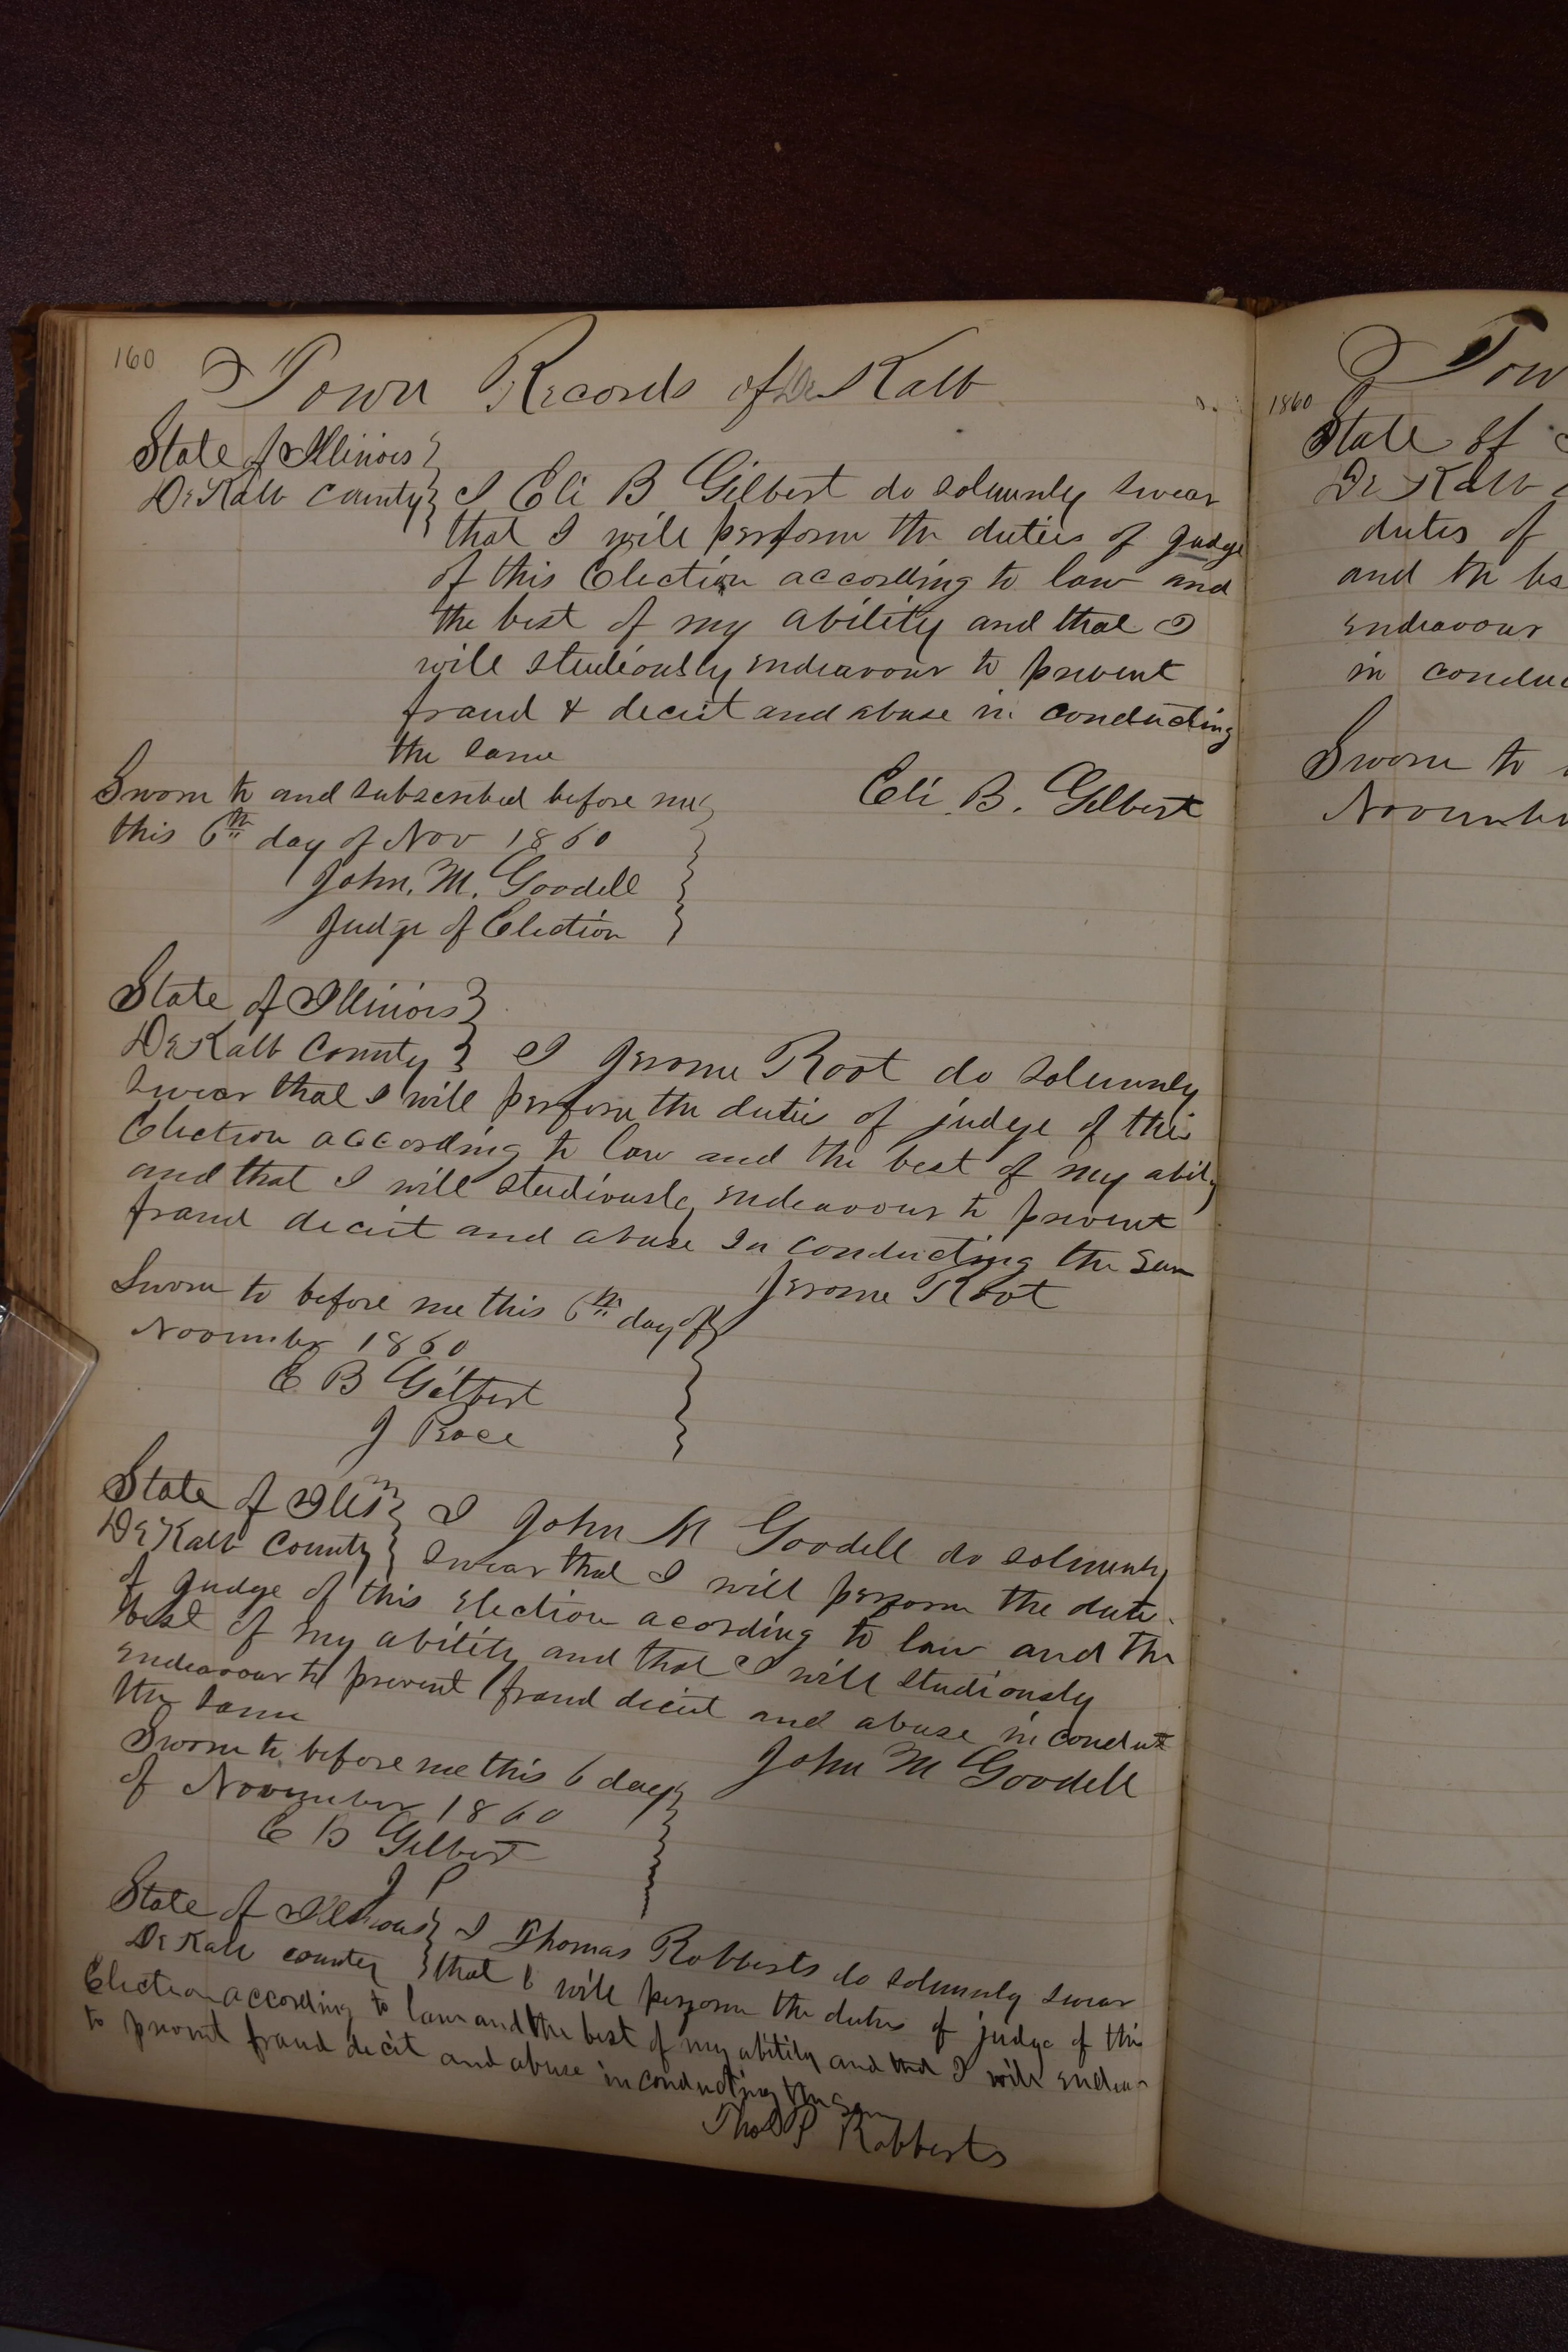 160
Town Records of De Kalb
State of Illinois
De Kalb County I Eli B Gilbert do solemnly swear
that I will perform the duties of Judge
of this Election according to law and
the best of my ability and that I
will studiously endeavour to prevent
fraud & deceit and abuse in conducting
the same
Eli. B. Gilbert
Sworn to and subscribed before me
this 6th day of Nov 1860
John. M. Goodell
Judge of Election
State of Illinois
De Kalb County I Jerome Root do solemnly
swear that I will perform the duties of judge of this
Election according to law and the best of my abity
and that I will studiously endeavour to prevent
fraud deceit and abuse in conducting the same
Jerome Root
Sworn to before me this 6th day of
November 1860
E B Gilbert
J Peace
State of Ills I John M Goodell do solemnly
De Kalb County swear that I will perform the dutie
of Judge of this Election acording to law and the
best of my ability and that I will studiously
endeavour to prevent fraud deceit and abuse in conduct
the same
John M Goodell
Sworn to before me this 6 day
of November 1860
E B Gilbert
J P
State of Illinois I Thomas Robberts do solemnly swear
De Kalb county that I will perform the duties of judge of this
Election according to law and the best of my ability and that I will endeav
to prevent fraud decit and abuse in conducting the same
Thos P Robberts
Tow
1860
State of
De Kalb
duties of
and the bes
endeavour
in conduc
Sworn to
November